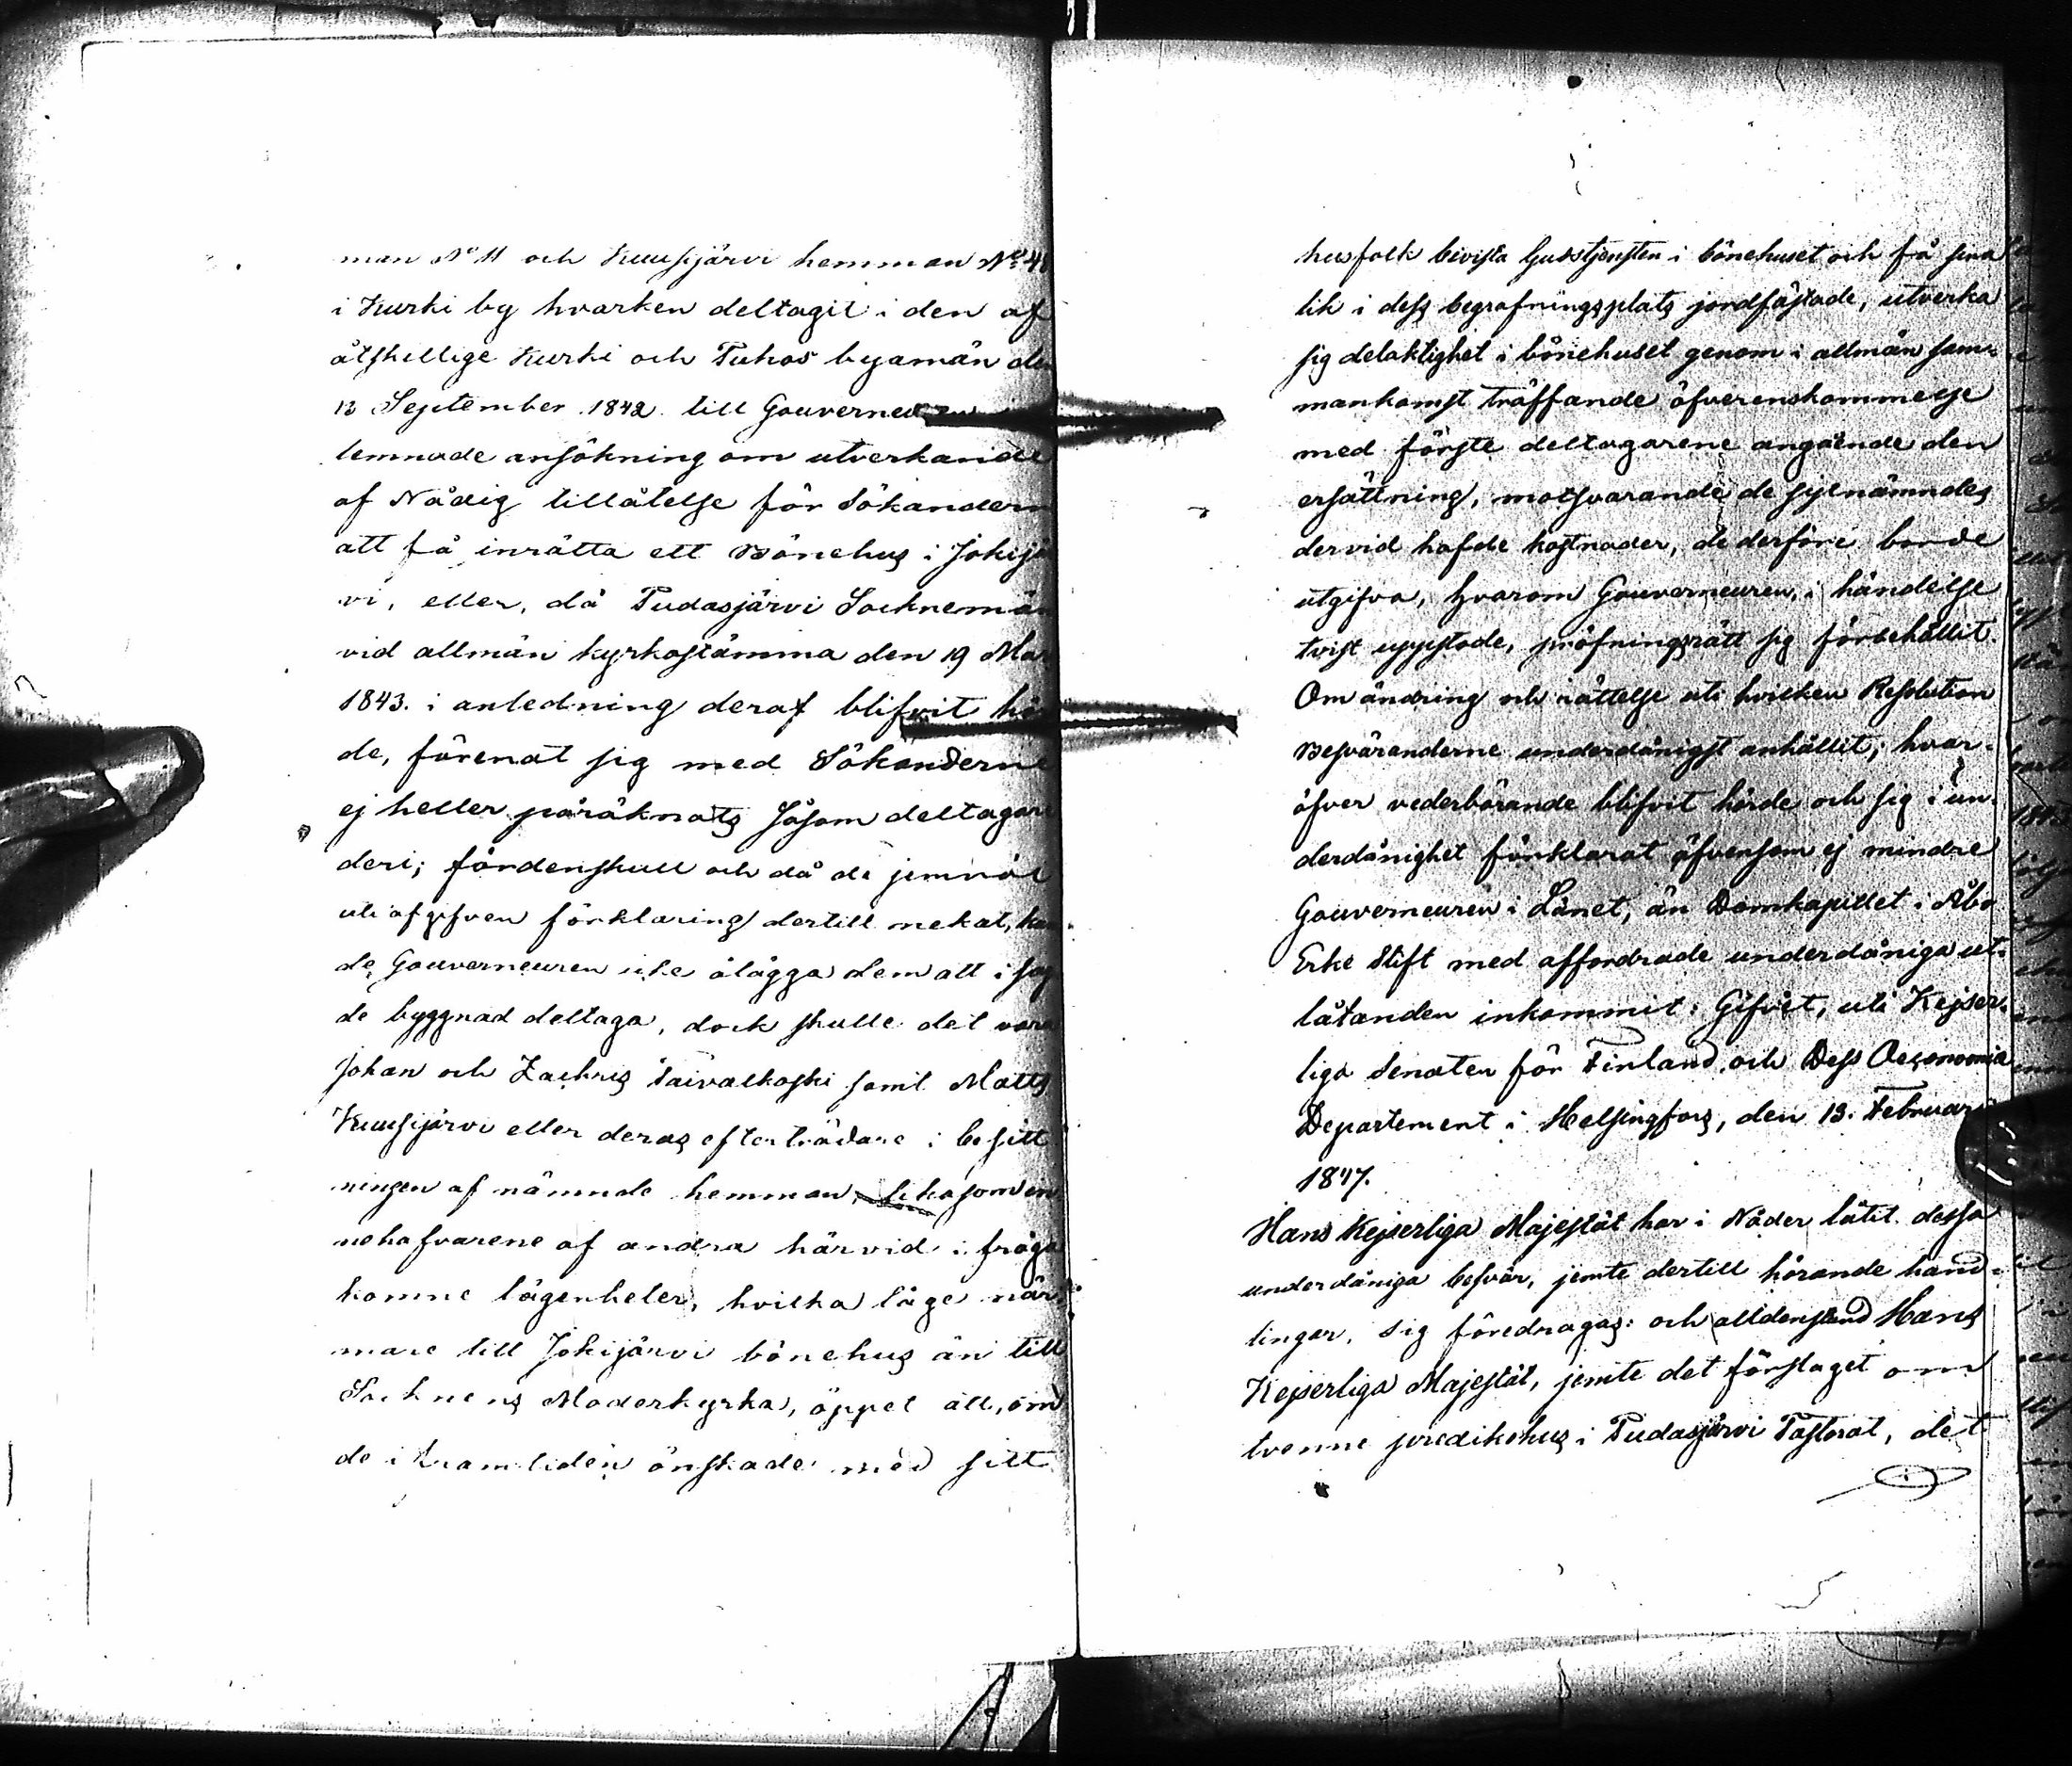 man N:o 11 och Kuusijärvi hemman N:o 4
i Kurki by hvarken deltagit i den af
åtskillige Kurki och Puhos byamän den
12 September 1842 till Gouverneuren
lemnade ansökning om utverkande
af Nådig tillåtelse för Sökandern
att få inrätta ett Bönehus i Jokijä
vi, eller, då Pudasjärvi Socknemän
vid allmän kyrkostämma den 19 Mar
1843. i anledning deraf blifvit hö
de, förenat sig med Sökanderne
ej heller påräknats såsom deltagare
deri; fördenskull och då de jemväl
uti afgifven förklaring dertill nekat, kun
de Gouverneuren icke ålägga dem att i sag
de byggnad deltaga, dock skulle det vara
Johan och Zachris Taivalkoski samt Matts
Kuusijärvi eller deras efterträdare i besitt
ningen af nämnde hemman, likasom in
nehafvarene af andra härvid i fråga
komne lägenheter, hvilka låge när
mare till Jokijärvi bönehus än till
Socknens Moderkyrka, öppet att, om
de i framtiden önskade med sitt
husfolk bevista Gudstjensten i bönehuset och få sina
lik i dess begrafningsplats jordfästade, utverka
sig delaktighet i bönehuset genom i allmän sam-
mankomst träffande öfverenskommelse
med förste deltagarene angående den
ersättning, motsvarande de sistnämndes
dervid hafde kostnader, de derföre borde
utgifva, hvarom Gouverneuren, i händelse
tvist uppstode, pröfningsrätt sig förbehållit.
Om ändring och rättelse uti hvilken Resolution
Besväranderne underdånigst anhållit; hvar-
öfver vederbörande blifvit hörde och sig i un-
derdånighet förklarat äfvensom ej mindre
Gouverneuren i Länet, än Domkapitlet i Åbo
Erke Stift med affordrade underdåniga ut-
låtanden inkommit: Gifvet, uti Kejser-
liga Senaten för Finland och Dess Oeconomie
Departement i Helsingfors, den 13. Februari
1847.
Hans Kejserliga Majestät har i Nåder låtit dessa
underdåniga besvär, jemte dertill hörande hand-
lingar, sig föredragas: och alldenstund Hans
Kejserliga Majestät, jemte det förslaget om
tvenne predikohus i Pudasjärvi Pastorat, det